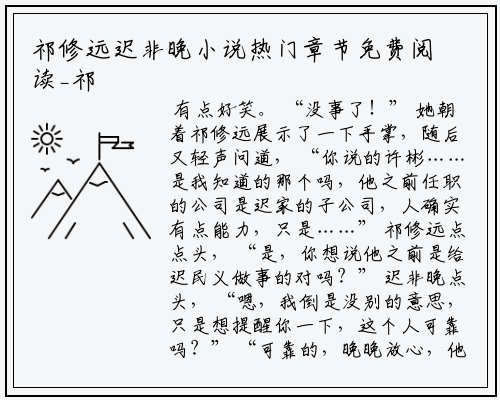 祁修远迟非晚小说热门章节免费阅
读-祁
有点好笑。 “没事了！” 她朝
着祁修远展示了一下手掌，随后
又轻声问道， “你说的许彬……
是我知道的那个吗，他之前任职
的公司是迟家的子公司，人确实
有点能力，只是……” 祁修远点
点头， “是，你想说他之前是给
迟民义做事的对吗？” 迟非晚点
头， “嗯，我倒是没别的意思，
只是想提醒你一下，这个人可靠
吗？” “可靠的，晚晚放心，他